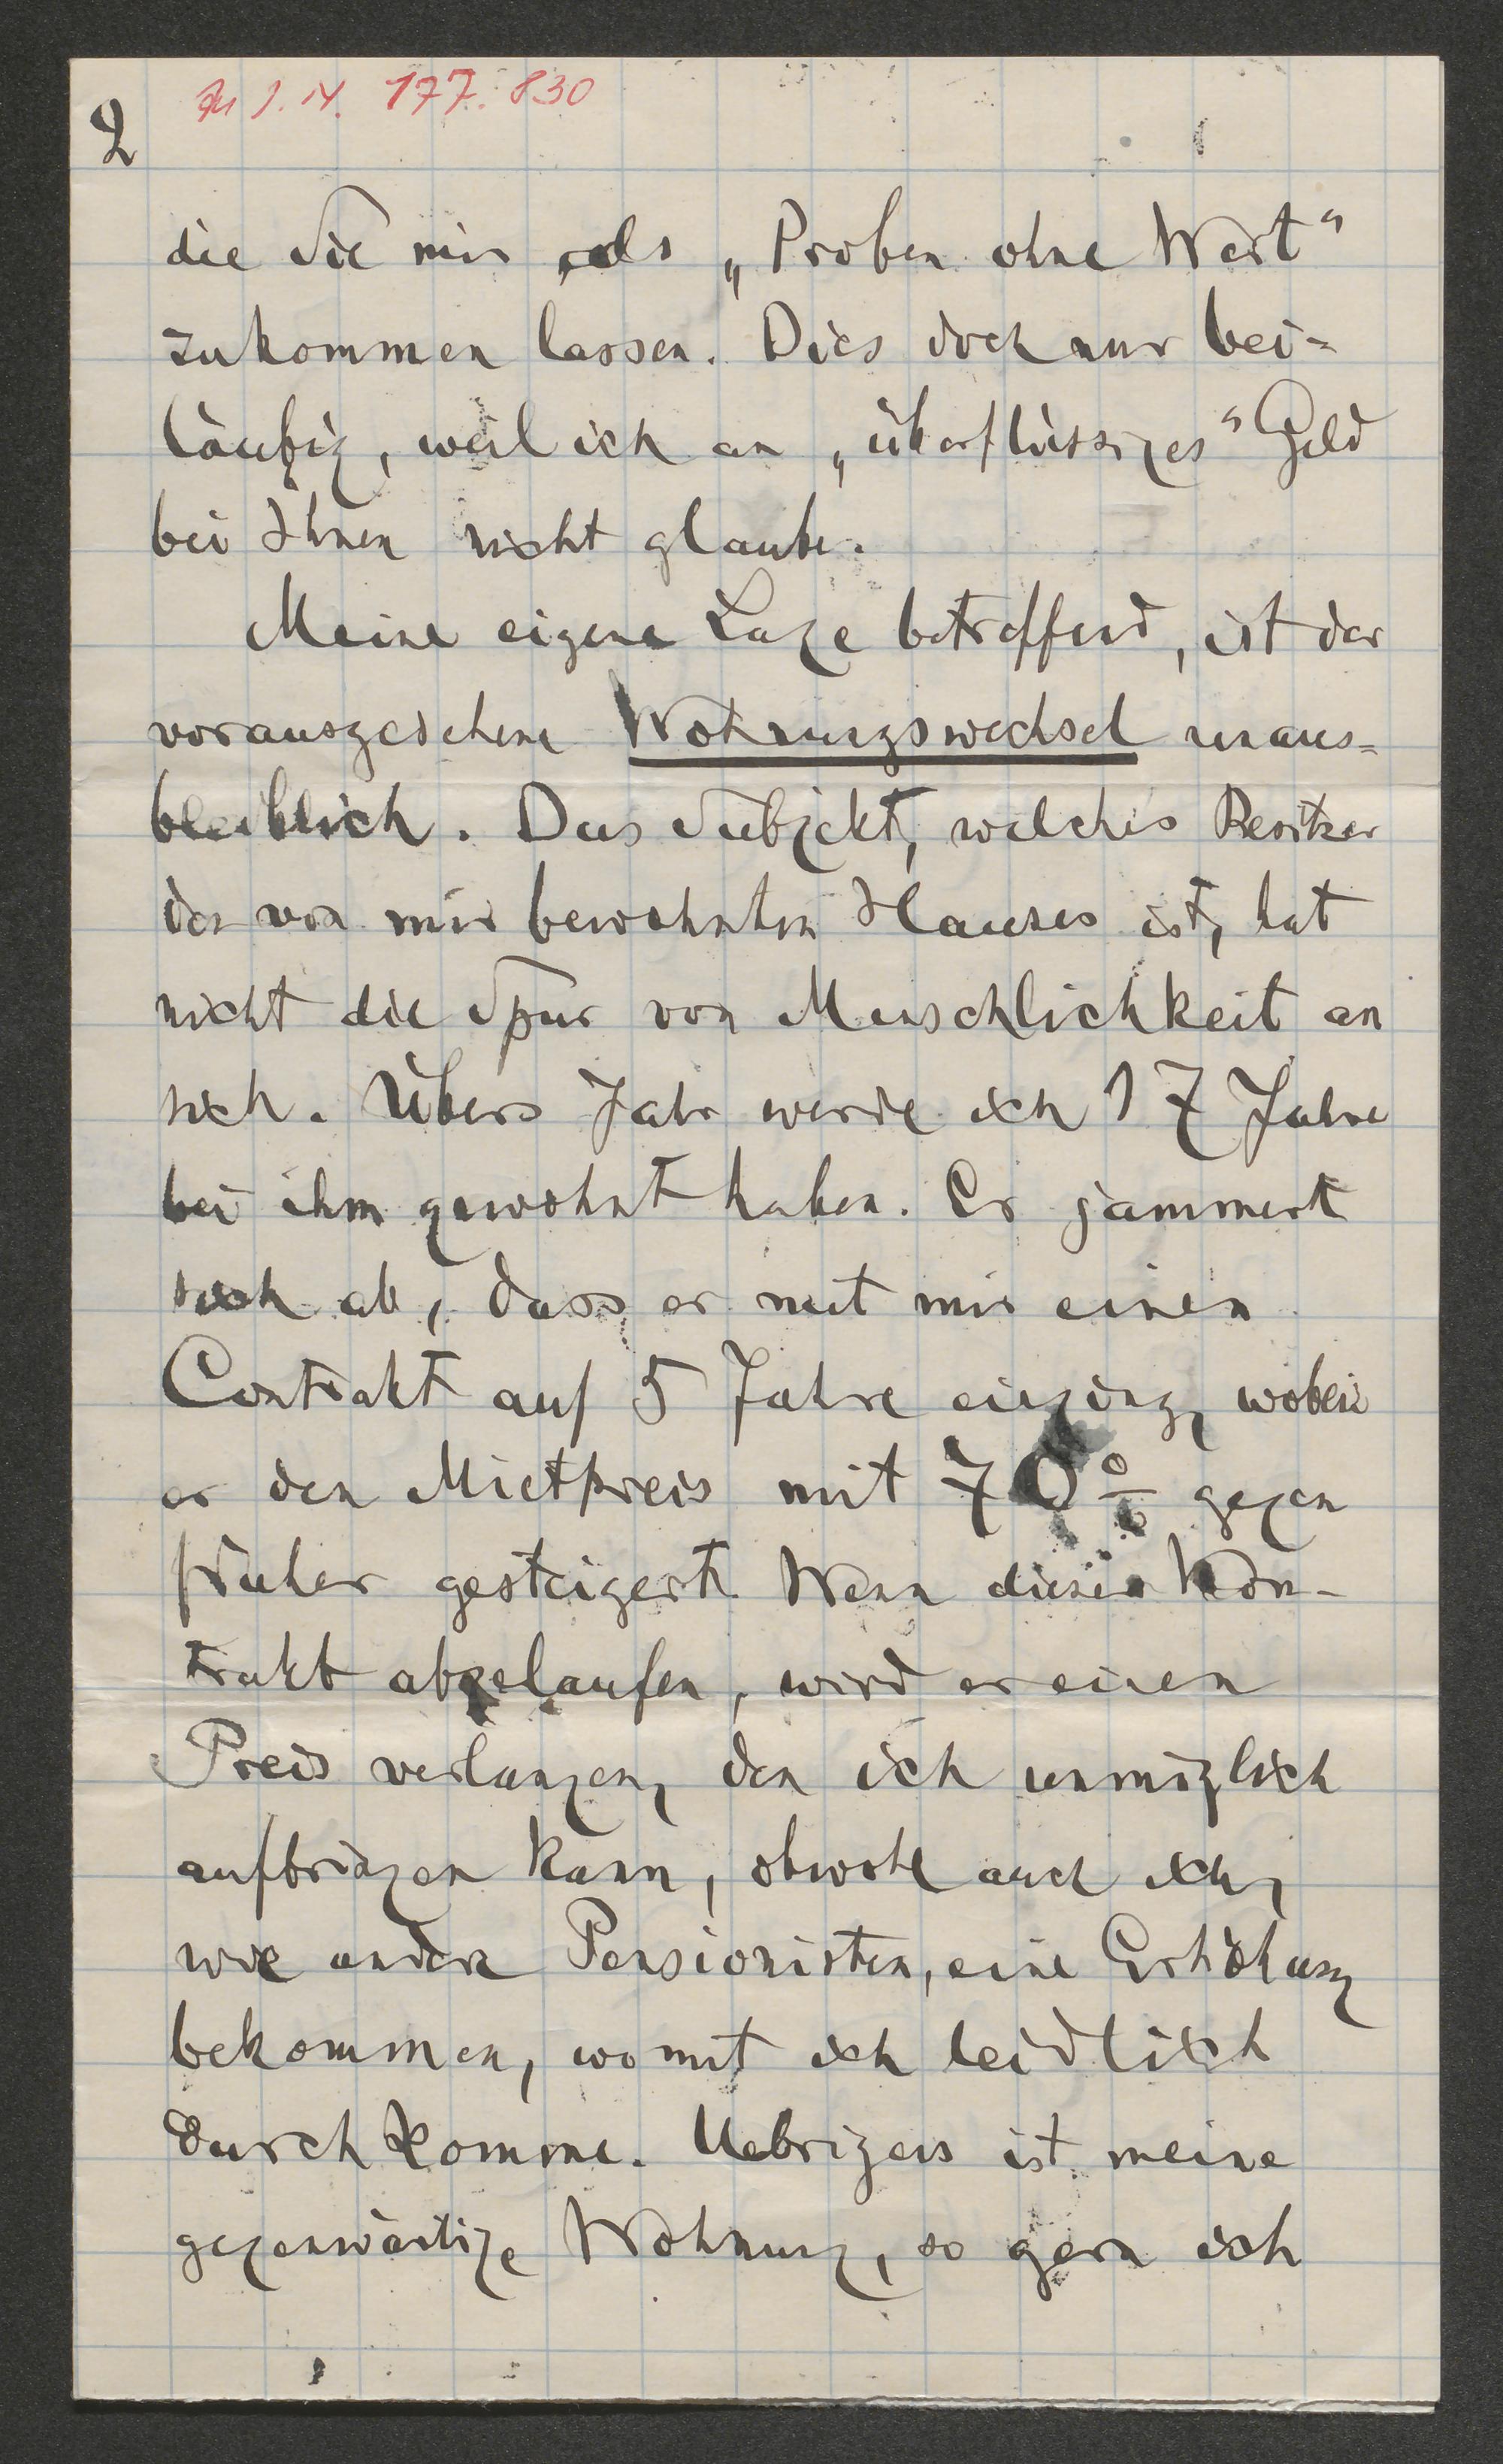 Zu I. N. 177.830
2
die Sie mir als „Proben ohne Wert"
zukommen lassen. Dies doch nur bei=
läufig, weil ich an „überflüssiges" Geld
bei Ihnen nicht glaube.
Meine eigene Lage betreffend, ist der
vorausgesehene Wohnungswechsel unaus=
bleiblich. Das Subjekt, welches Besitzer
des von mir bewohnten Hauses ist, hat
nicht die Spur von Menschlichkeit an
sich. Übers Jahr werde ich 17 Jahre
bei ihm gewohnt haben. Er jammert
sich ab, dass er mit mir einen
Contrakt auf 5 Jahre einging, wobei
er den Mietpreis mit 70 % gegen
früher gesteigert. Wenn dieser Kon-
trakt abgelaufen, wird er einen
Preis verlangen, den ich unmöglich
aufbringen kann, obwohl auch ich,
wie andere Pensionisten, eine Erhöhung
bekommen, womit ich leidlich
durchkomme. Uebrigens ist meine
gegenwärtige Wohnung, so gern ich